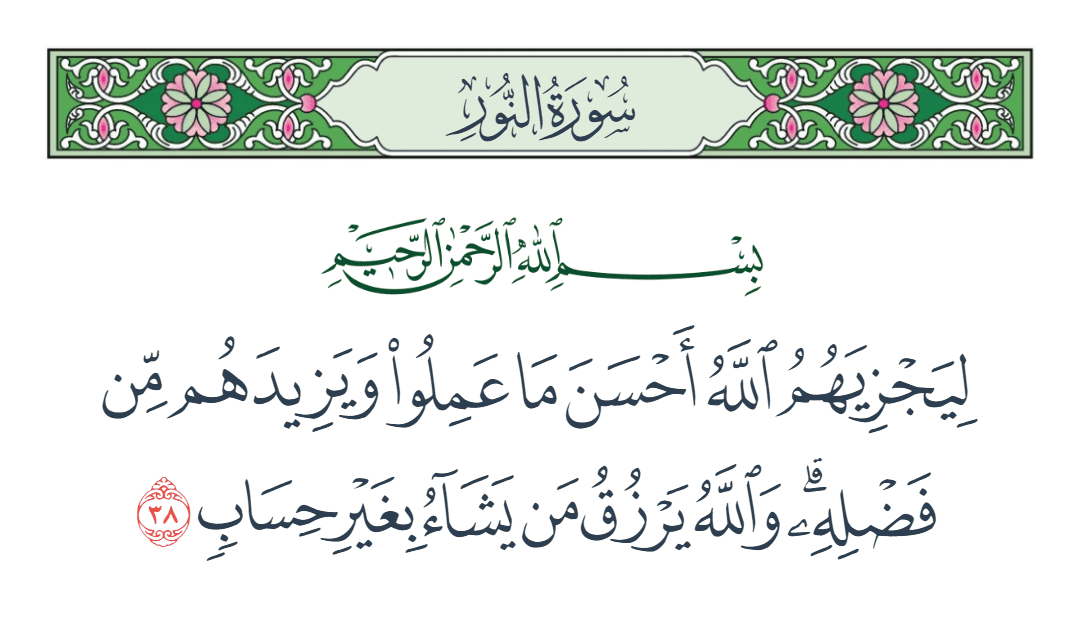 سُورَةُ النُّورِ
بِسْمِ ٱللَّهِ ٱلرَّحْمَٰنِ ٱلرَّحِيمِ
لِيَجْزِيَهُمُ ٱللَّهُ أَحْسَنَ مَا عَمِلُوا۟ وَيَزِيدَهُم مِّن
فَضْلِهِۦۗ وَٱللَّهُ يَرْزُقُ مَن يَشَآءُ بِغَيْرِ حِسَابٍ ٣٨